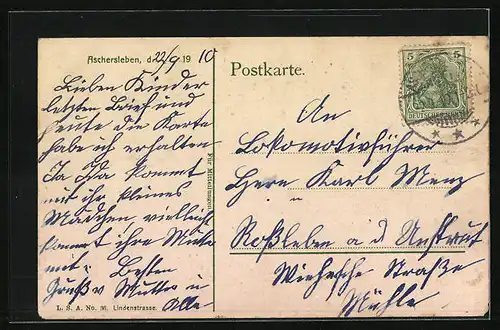 Aschersleben, d. 22/9 1910
Postkarte.
Lieben Kinder
letzten Brief und
heute die Karte
habe ich erhalten
Ja Ida kommt
mit ihr kleines
Mädchen vielleich
kommt ihre Mutter
mit. Besten
Gruß v Mutter u
Alle
Für Mitteilungen.
L. S. A. No. 36. Lindenstrasse.
5 5
DEUTSCHES REICH
An
Lokomotivführer
Herrn Karl Menz
Roßleben a d Unstrut
Wiehesche Straße
Mühle